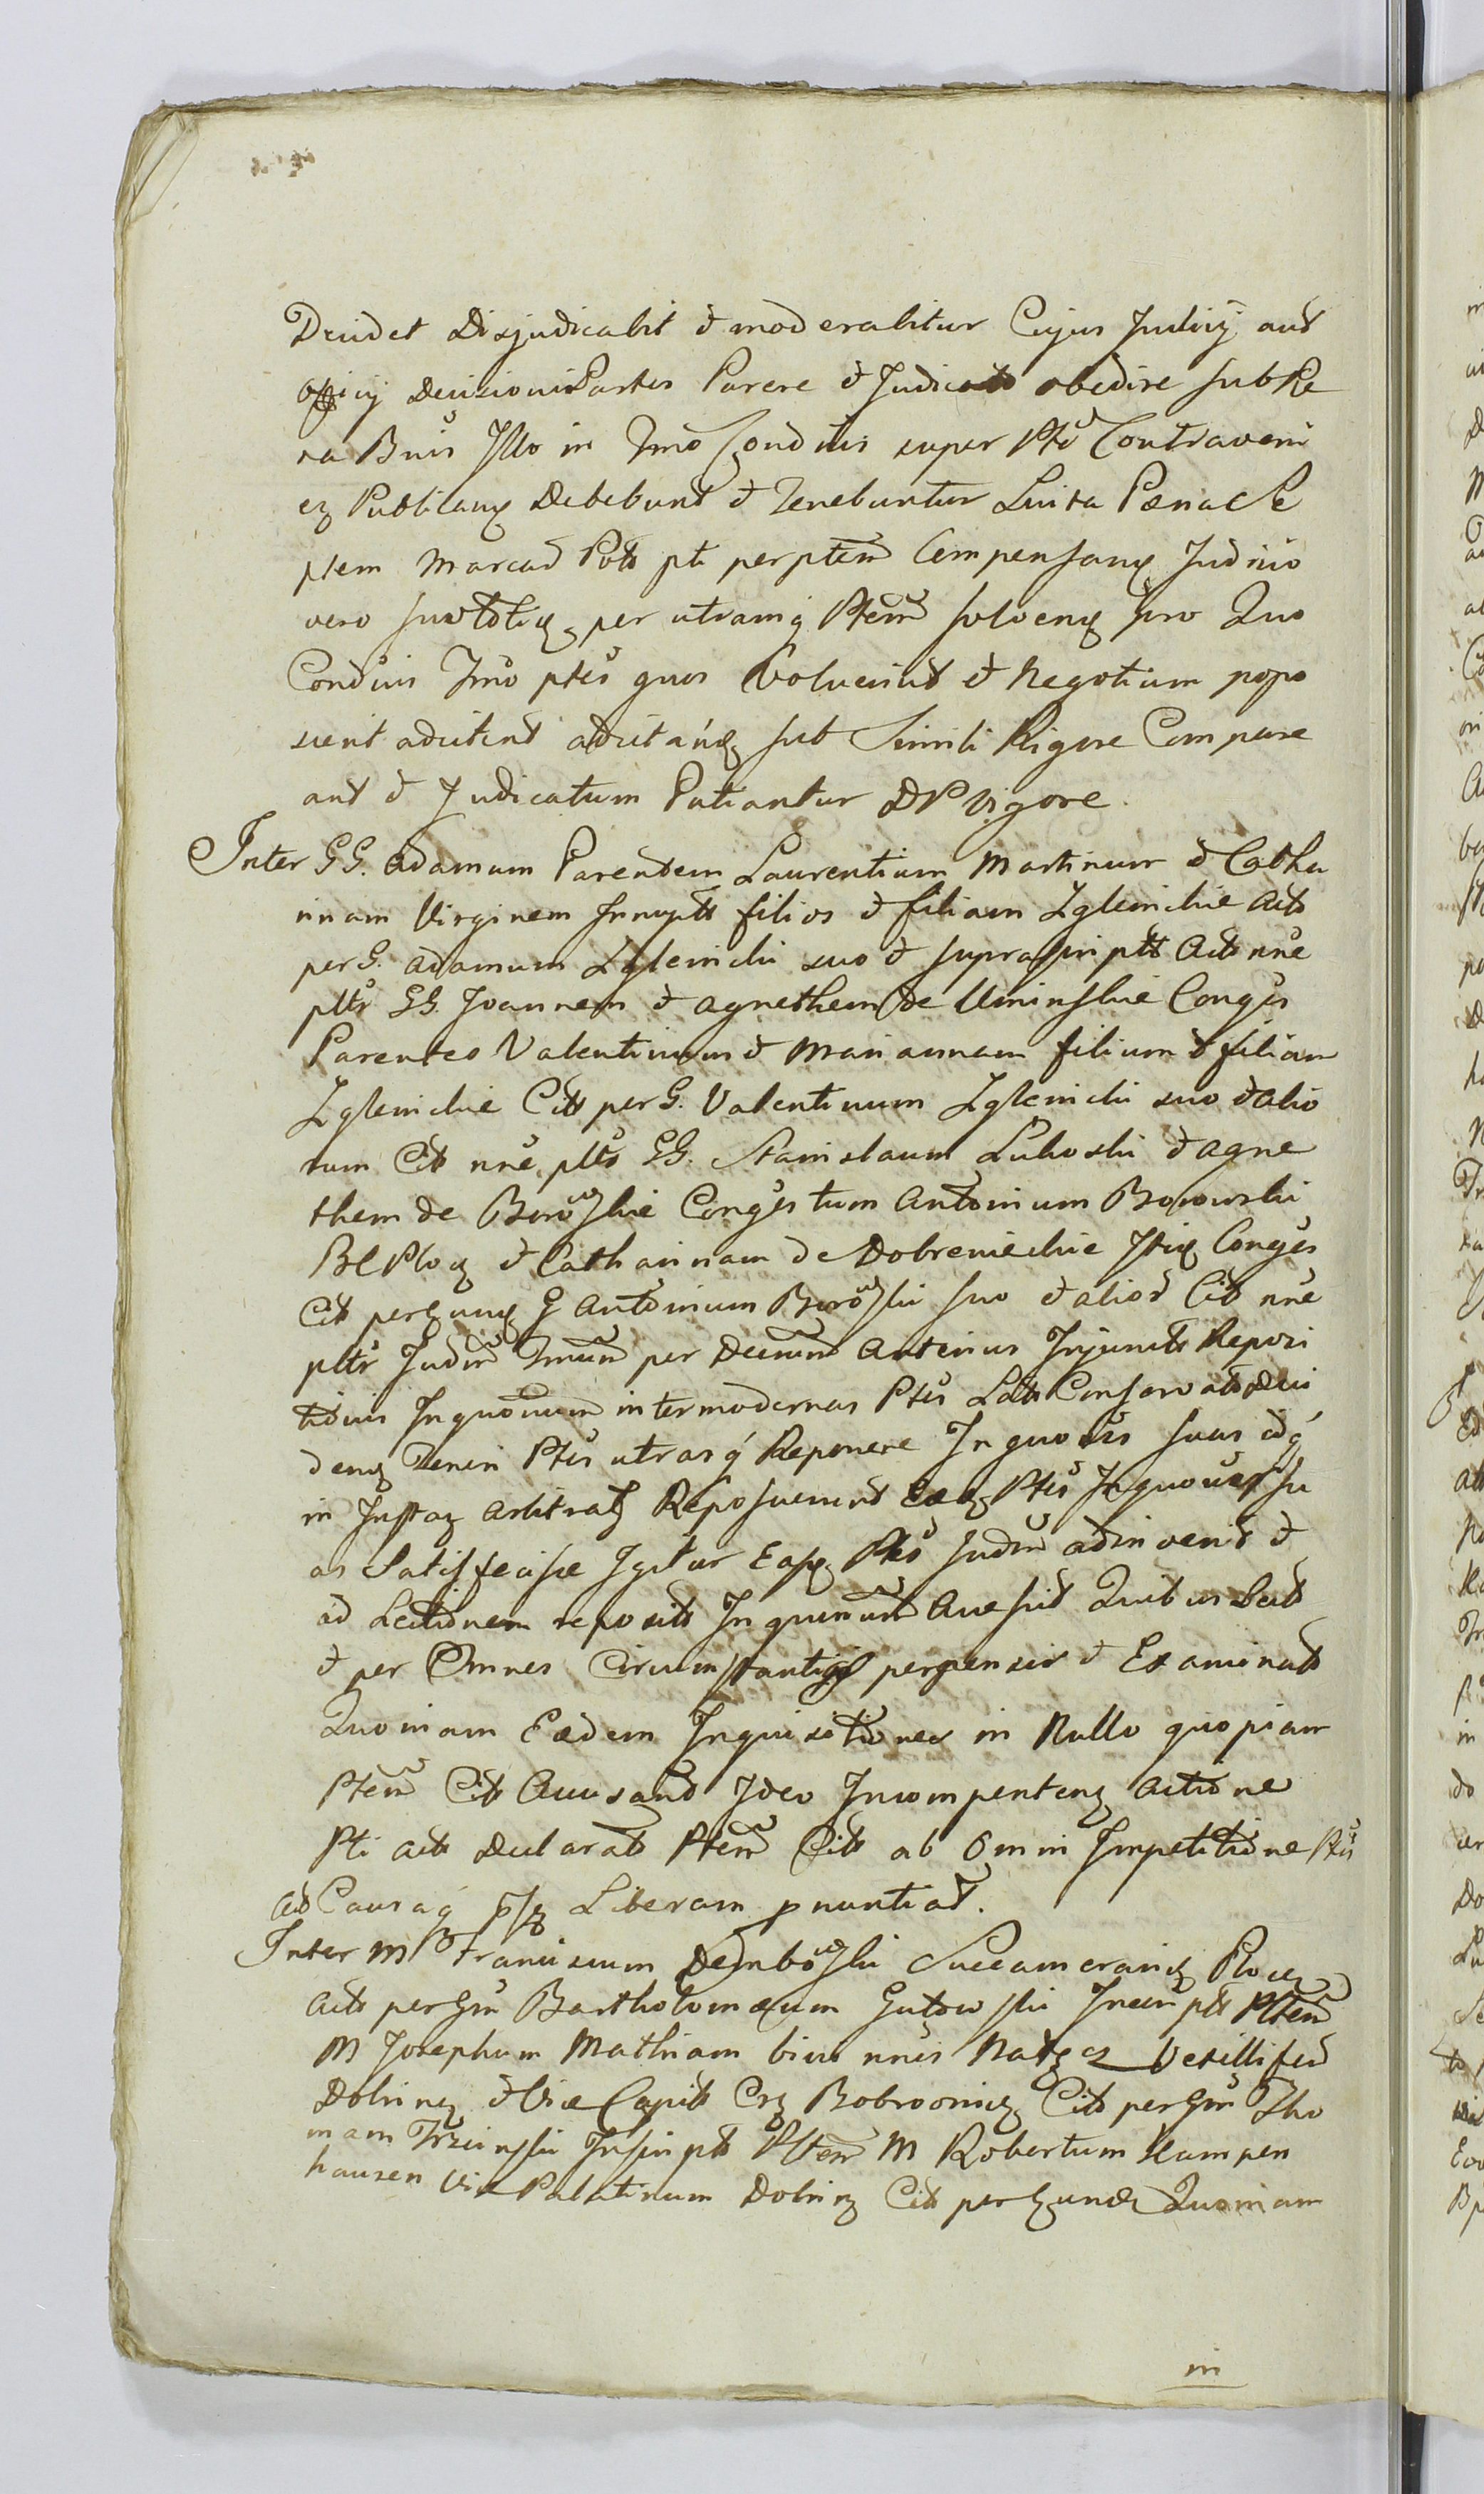 Decidet Disjudicabit & moderabitur Cujus Judicij aut
officij Decisioni Partes Parere & Judicato obedire sub Re
ra Bnis Illo in Tmo Condnis super Pte Contraveni
eg Publicang Debebunt & Tenebuntur Luita Pæna Se
ptem Marcar Pots pti per ptem Compensang Judicio
vero per utramq Ptem solveng pro Quo
Condnis Tmo ptes quos Voluerint & Negotium popo
scerit adcitent adcitang sub Simili Rigore Compare
ant & Judicatum Patiantur DP Vigore.
Inter GG. Adamum Parentem Laurentium Martinum & Catha
rinam Virginem Innupts filios & filiam Zglenickie Acts
per G. Adamum Zglenicki suo & suprascriptt Acts nne
pltr GG. Joannem & Agnethem de Uminskie Congs
Parentes Valentinum & Mariannam filium & filiam
Zglenickie Citt per G. Valentinum Zglenicki suo & alio
rum Cit nne pltr GG. Stanislaum Lukoski & Agne
them de Borowskie Conges tum Antonium Borowski
BC Plocg & Catharinam de Dobrenieckie Istig Conges
Cit per Eung G Antonium Borowski suo & alior Cit nne
pltr Judm Tmum per Decrum Anterius Injuncts Reposi
tionis Inquonum inter modernas Ptes Lats Conservatt
deng Teneri Ptes utrasq Reponere Inquones suas adq
in Instag Arbitratg Reposuerunt Eaeg Ptes Inquones su
as Satisfecisse Igitur Easg Ptes Judm adinvenit &
ad Lectionem reposits Inquonum Accessit Quibus Lects
& per Omnes Circumstantias perpensis & Examinats
Quoniam Eædem Inquisitiones in Nullo quopiam
Ptem Cit Accusant Ideo Incompententg Actione
Pti Acts Declarats Ptem Citt ab Omni Impetitione Ptis
Act Causaq psg Liberam pnuntiat.
Inter M Franciscum Dembowski Succamerarig Plocg
Acts per Gm Bartholomæum Gutowski Inscripts Pltem
M Josephum Mathiam binis nnis Vexillifer
Dobring & Vice Capits Crg Bobrownicg Citt per Gm Tho
mam Trzcinski Inscripts Pltem M Robertum Kampen
hausen Vice Palatinum Dobring Cit per Eundg Quoniam
in